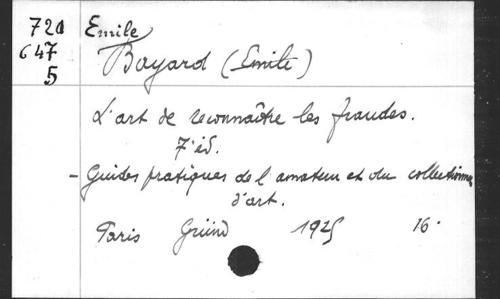 720 Emile
647 Bayard (Emile)
5
L'art de reconnaître les fraudes.
7e éd.
- Guides pratiques de l'amateur et du collectionneur
d'art.
Paris Gründ 1925 16°